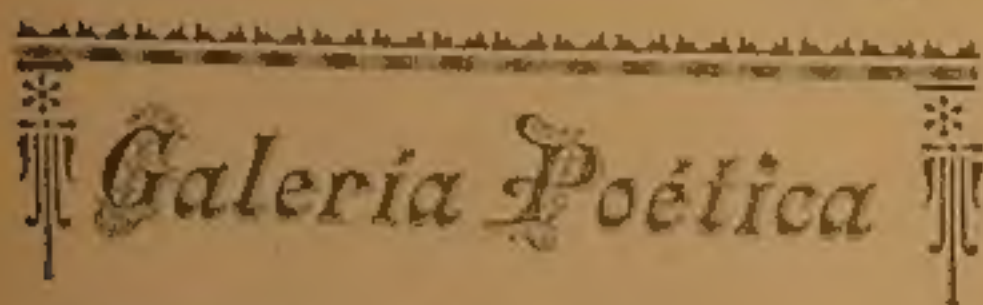 Galería Poética